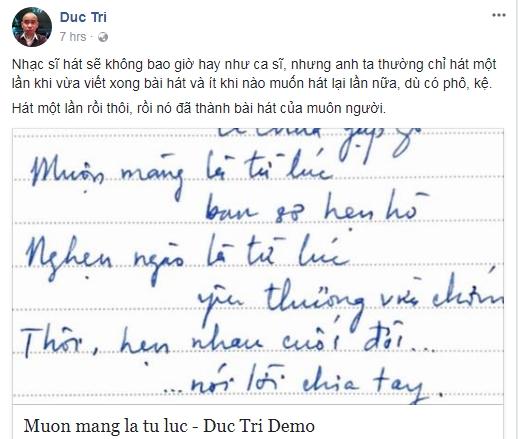 Duc Tri
7 hrs ·
Nhạc sĩ hát sẽ không bao giờ hay như ca sĩ, nhưng anh ta thường chỉ hát một
lần khi vừa viết xong bài hát và ít khi nào muốn hát lại lần nữa, dù có phô, kệ.
Hát một lần rồi thôi, rồi nó đã thành bài hát của muôn người.
gặp gỡ
Muộn màng là từ lúc
ban sơ hẹn hò
Nghẹn ngào là từ lúc
yêu thương vừa chớm
Thôi, hẹn nhau cuối đời...
...nói lời chia tay.
Muon mang la tu luc - Duc Tri Demo